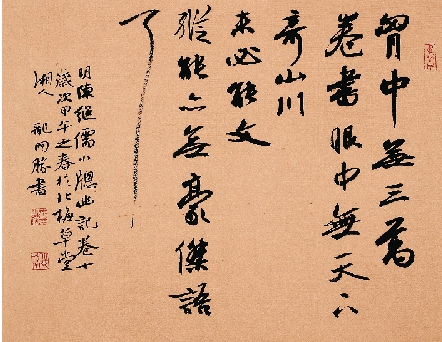 胷中無三萬
卷書眼中無天下
奇山川
未必能文
縱能亦無豪傑語
耳
明陳繼儒小牕幽記卷十
歲次甲午之春於北草堂
湘人 龍開勝書